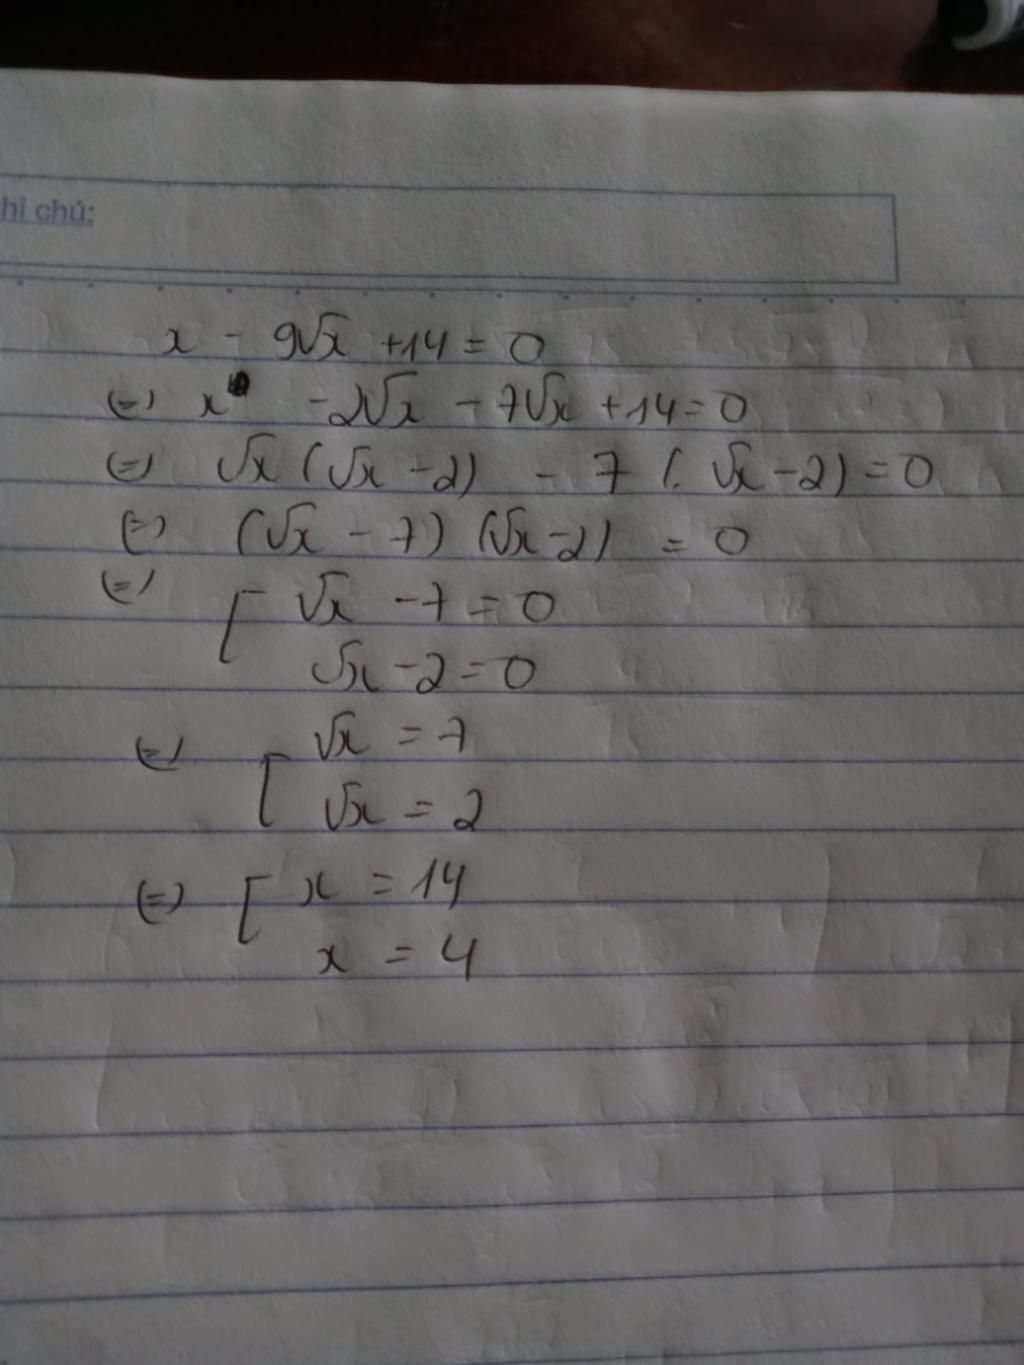 hi chú:
x - 9√x +14 = 0
(=) x - 2√x - 7√x + 14 = 0
(=) √x (√x - 2) - 7 (. √x - 2) = 0
(=) (√x - 7) (√x - 2) = 0
(=) [ √x - 7 = 0
√x - 2 = 0
(=) [ √x = 7
√x = 2
(=) [ x = 14
x = 4